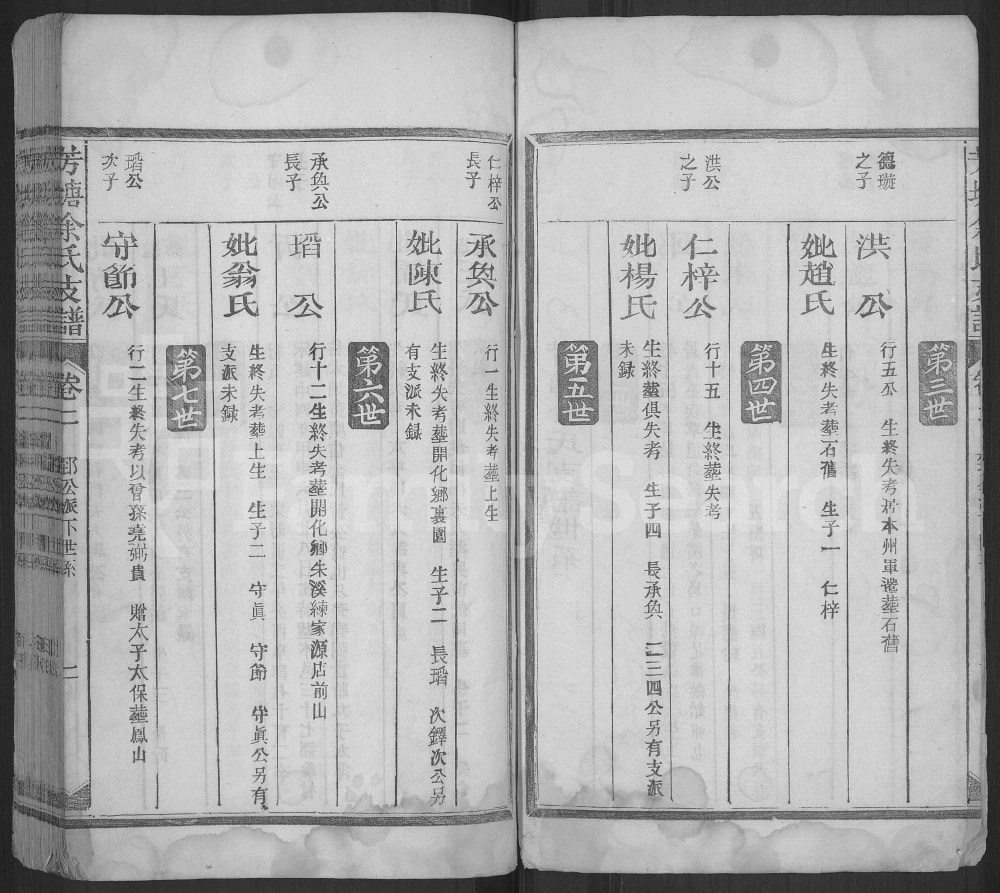 第三世
德璇
之子
洪公
行五 生終失考居本州軍遷塟石舊
妣趙氏
生終失考塟石舊 生子一 仁梓
第四世
洪公
之子
仁梓公
行十五 生終塟失考
妣楊氏
生終塟俱失考 生子四 長承奐 二三四公另有支派
未録
第五世
仁梓公
長子
承奐公
行一生終失考塟上生
妣陳氏
生終失考塟開化鄉裏園 生子二 長瑫 次鐸次公另
有支派未録
第六世
承奐公
長子
瑫公
行十二生終失考塟開化鄉朱溪練家源店前山
妣翁氏
生終失考塟上生 生子二 守眞 守節 守眞公另有
支派未録
第七世
瑫公
次子
守節公
行二生終失考以曾孫堯弼貴 贈太子太保塟鳳山
芳塘余氏支譜 卷二 郅公派下世系 二